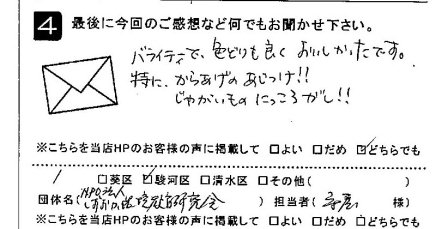 4 最後に今回のご感想など何でもお聞かせ下さい。
バライティで、色どりも良く おいしかったです。
特に、からあげのあじつけ!!
じゃがいものにっころがし!!
※こちらを当店HPのお客様の声に掲載して □よい □だめ ☑どちらでも
□葵区 ☑駿河区 □清水区 □その他( )
団体名( NPO法人 研究会 ) 担当者( 様)
※こちらを当店HPのお客様の声に掲載して □よい □だめ □どちらでも